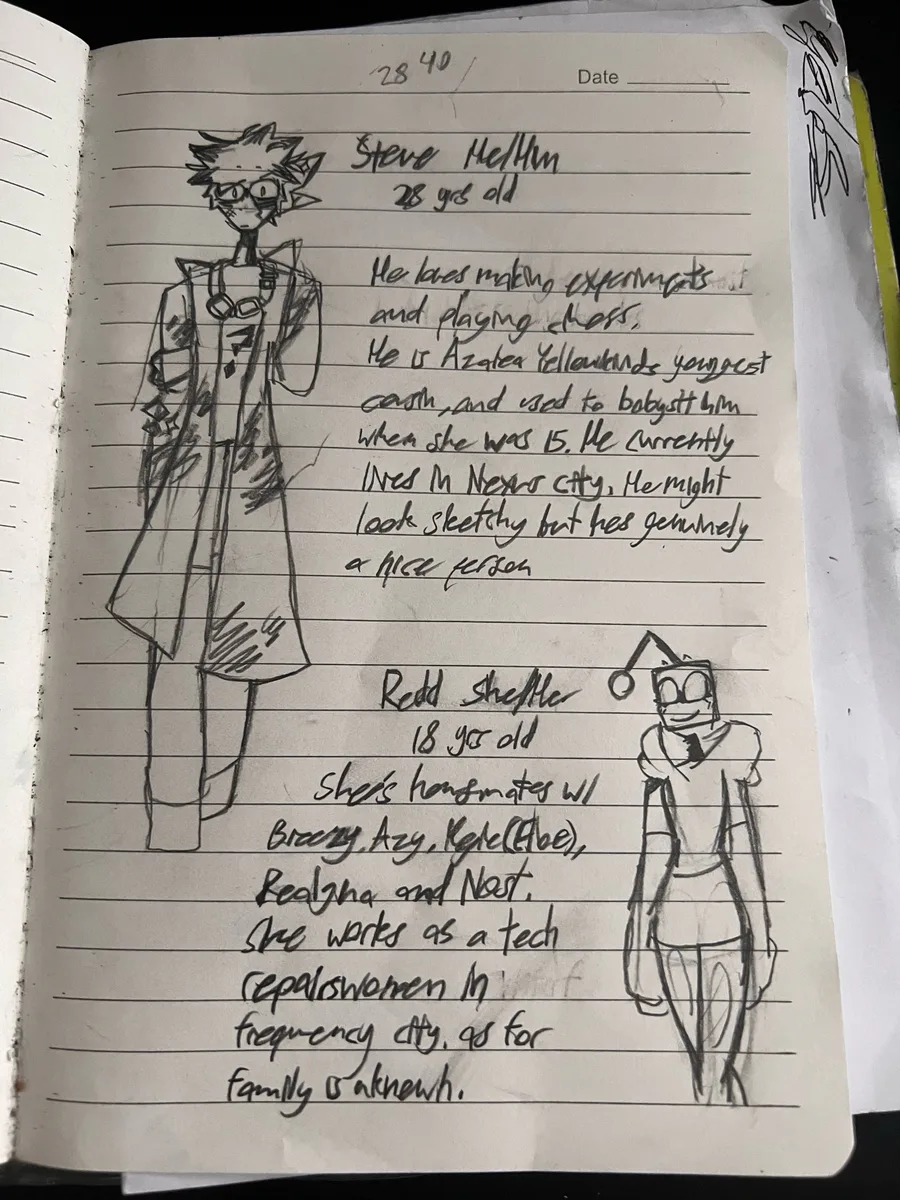 28 40
Date
Steve He/Him
28 yrs old
He loves making experiments
and playing chess.
He is Azalea youngest
cousin, and used to babysitt him
when she was 15. He currently
lives in Nexus city, He might
look sketchy but hes genuinely
a nice person
Redd She/Her
18 yrs old
She's housmates w/
Breezy, Azy, Kyle(Elbe),
and Nost.
She works as a tech
repairswomen in
frequency city, as for
family is uknewn.